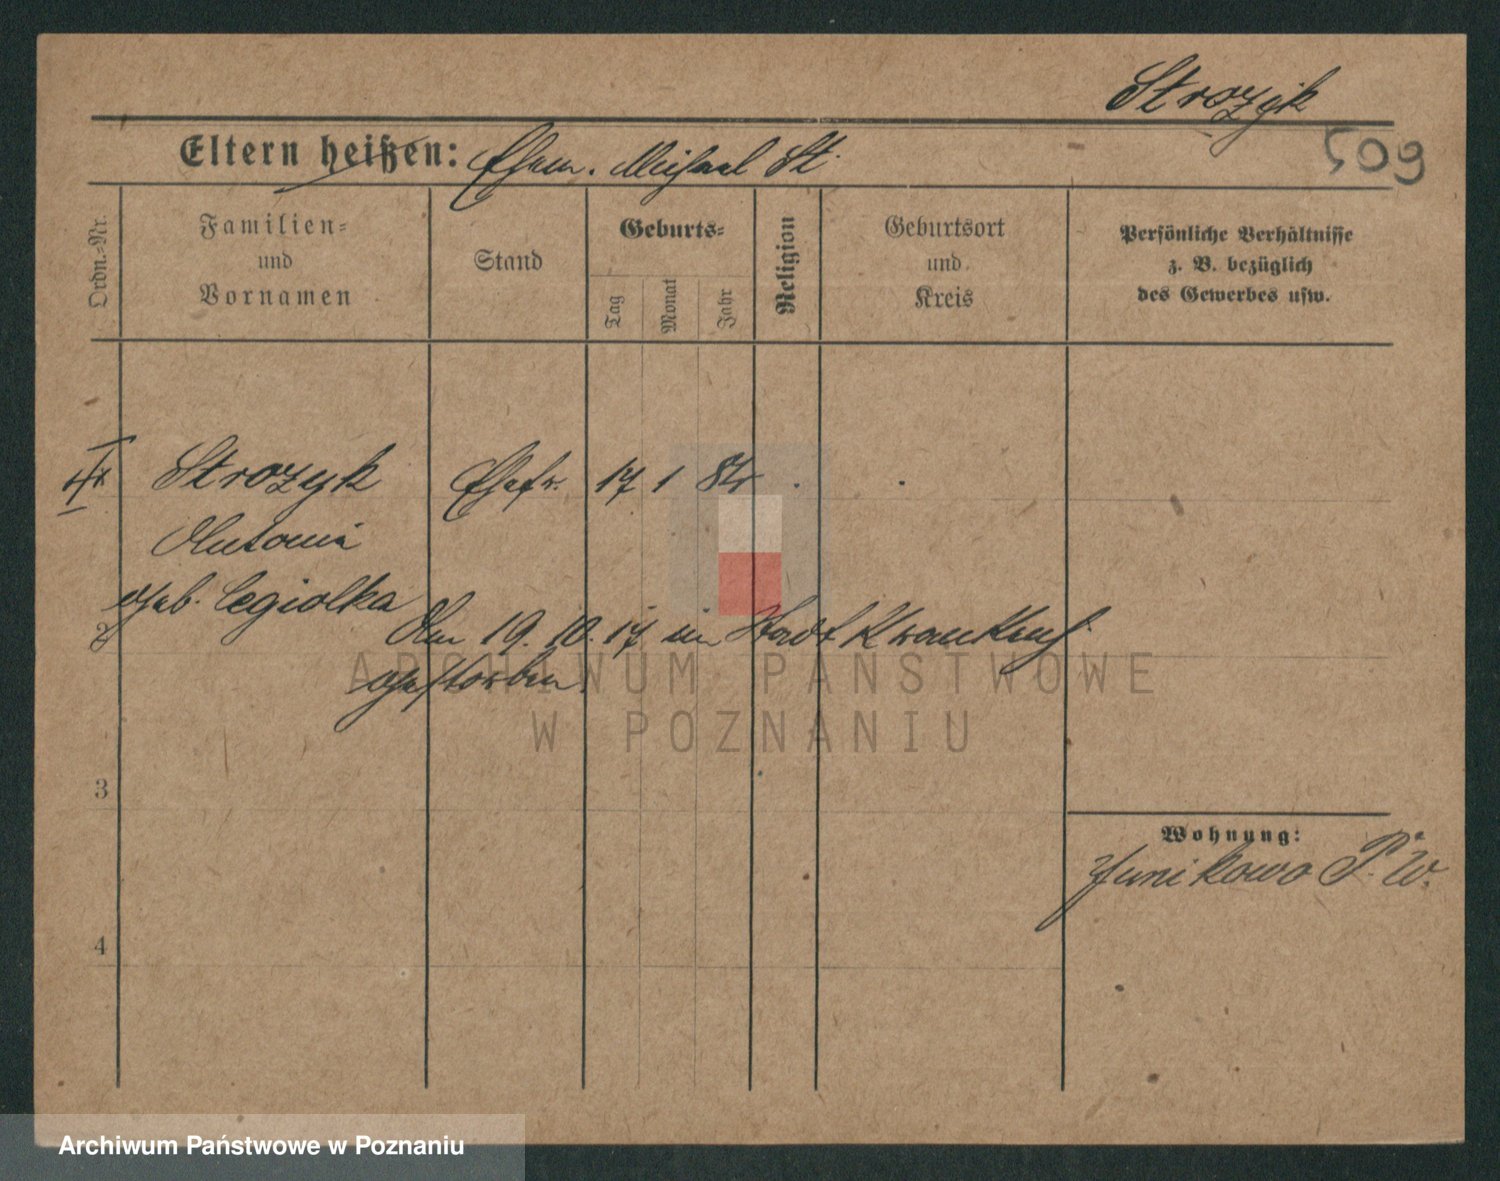 Strozyk
509
Eltern heißen: Ehem. Michael St.
Ordn.-Nr.
Familien-
und
Vornamen
Stand
Geburts-
Tag
Monat
Jahr
Religion
Geburtsort
und
Kreis
Persönliche Verhältnisse
z. B. bezüglich
des Gewerbes usw.
Strozyk Ehefr. 17 1
Antonia
geb. Cegiolka
2
Am 19. 10. 17 im Stadt Krankenh.
gestorben.
3
4
Wohnung:
Junikowo P. W.
ARCHIWUM PAŃSTWOWE
W POZNANIU
Archiwum Państwowe w Poznaniu